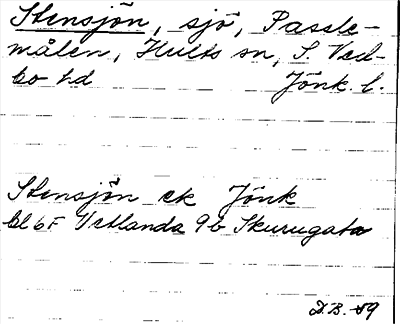 Stensjön, sjö, Passle-
målen, Hults sn, S. Ved-
bo hd Jönk. l.
Stensjön ek Jönk
bl 6F Vetlanda 9b Skurugata
D.B. -89